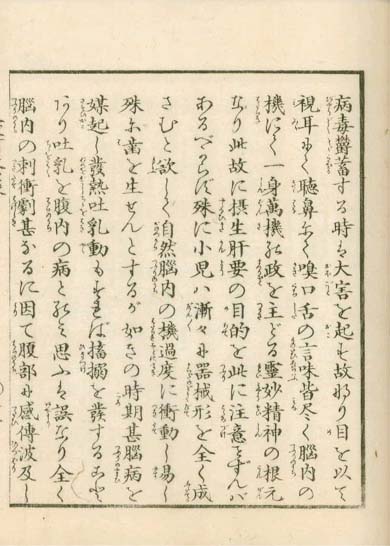 病毒欝蓄する時は大害を起も故なり目を以て
視耳にて聴鼻にて嗅口舌の言味皆尽く脳内の
機にて一身萬機の政を主どる靈妙精神の根元
なり此故に摂生肝要の目的を此に注意せずんバ
あるべからず殊に小児ハ漸々に器械形を全く成
さむと欲して自然脳内の機過度に衝動し易し
殊に歯を生せんとするが如きの時期甚脳病を
媒起し發熱吐乳動もすれば搐搦を發する
吐乳を腹内の病と思ふは誤なり全く
脳内の刺衝劇甚なるに因て腹部に感傳波及し